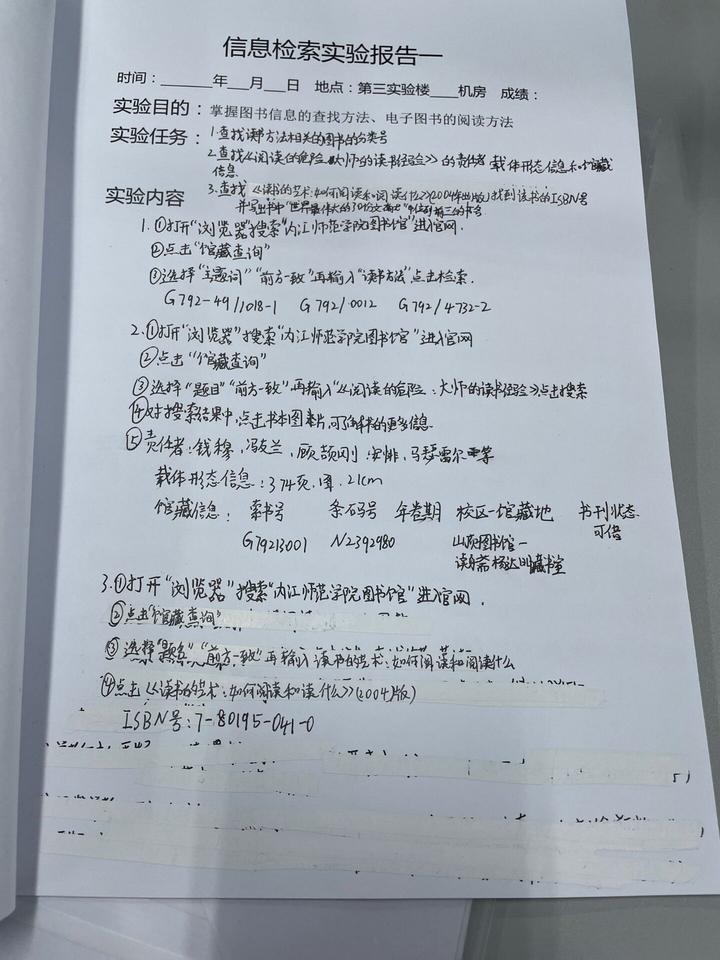 信息检索实验报告一
时间：______年___月___日 地点：第三实验楼____机房 成绩：
实验目的：掌握图书信息的查找方法、电子图书的阅读方法
实验任务：1.查找读书方法相关的图书的分类号
2.查找《阅读的危险 大师的读书经验》的责任者 载体形态信息和馆藏
信息
3.查找《读书的艺术:如何阅读和阅读什么》(2004年出版)找到该书的ISBN号
并写出书中"世界最伟大的30份文献"中位列前三的书名
实验内容
1.①打开"浏览器"搜索"内江师范学院图书馆"进入官网.
②点击"馆藏查询"
③选择"主题词""前方一致"再输入"读书方法"点击检索.
G792-49/1018-1 G792/0012 G792/4732-2
2.①打开"浏览器"搜索"内江师范学院图书馆"进入官网
②点击"馆藏查询"
③选择"题目""前方一致"再输入"《阅读的危险：大师的读书经验》点击搜索
④对搜索结果中,点击书本图片,可了解书的更多信息.
⑤责任者:钱穆,冯友兰,顾颉刚,安徘,马瑟雷尔等
载体形态信息:374页,图,21cm
馆藏信息： 索书号 条码号 年卷期 校区—馆藏地 书刊状态
可借
G79213001 N2392980 图书馆一
藏书室
3.①打开"浏览器"搜索"内江师范学院图书馆"进入官网.
②点击"馆藏查询"
③选择"题名""前方一致"再输入读书的艺术:如何阅读和阅读什么
④点击《读书的艺术:如何阅读和读什么》(2004版)
ISBN号:7-80195-041-0